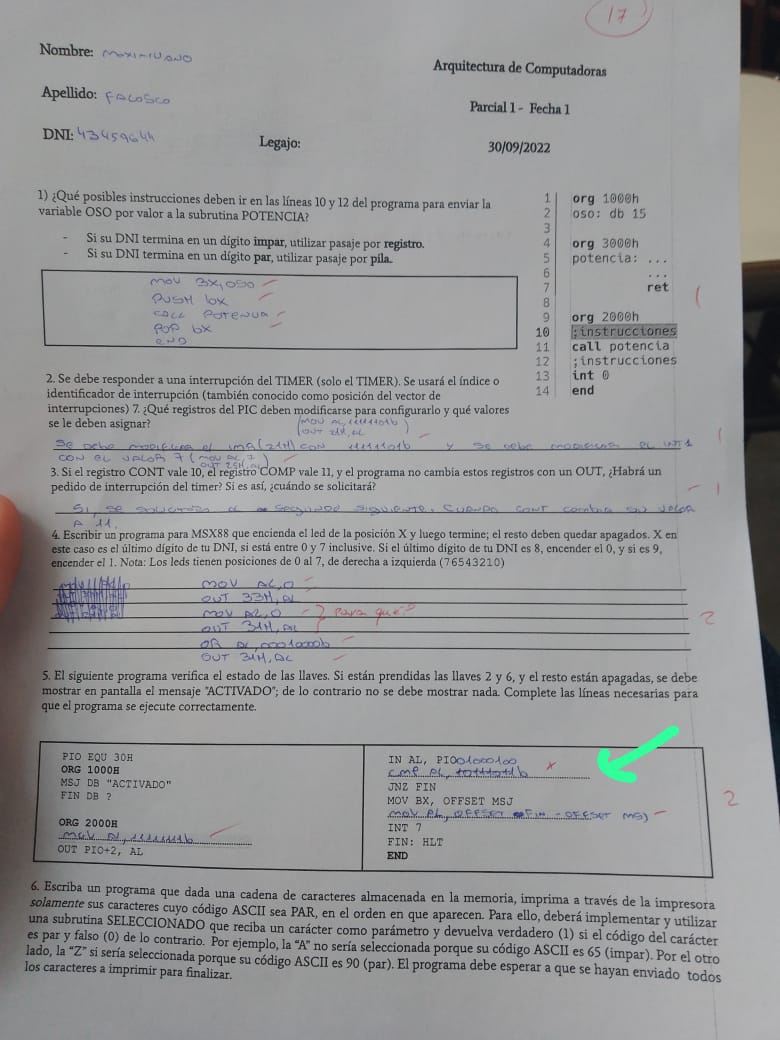 17
Nombre: MAXIMILIANO
Arquitectura de Computadoras
Apellido: FALOSCO
Parcial 1 - Fecha 1
DNI: 43459644
Legajo:
30/09/2022
1) ¿Qué posibles instrucciones deben ir en las líneas 10 y 12 del programa para enviar la
variable OSO por valor a la subrutina POTENCIA?
- Si su DNI termina en un dígito impar, utilizar pasaje por registro.
- Si su DNI termina en un dígito par, utilizar pasaje por pila.
MOV BX, OSO
PUSH bx
CALL POTENCIA
POP bx
END
1 org 1000h
2 oso: db 15
3
4 org 3000h
5 potencia: ...
6 ...
7 ret
8
9 org 2000h
10 ;instrucciones
11 call potencia
12 ;instrucciones
13 int 0
14 end
1
2. Se debe responder a una interrupción del TIMER (solo el TIMER). Se usará el índice o
identificador de interrupción (también conocido como posición del vector de
interrupciones) 7. ¿Qué registros del PIC deben modificarse para configurarlo y qué valores
se le deben asignar?
(MOV AL, 11111101b
OUT 21H, AL
SE DEBE MODIFICAR EL IMR (21H) CON 11111101b Y SE DEBE MODIFICAR EL INT1
CON EL VALOR 7 (MOV AL, 7
OUT 25H, AL)
1
3. Si el registro CONT vale 10, el registro COMP vale 11, y el programa no cambia estos registros con un OUT, ¿Habrá un
pedido de interrupción del timer? Si es así, ¿cuándo se solicitará?
SI, SE SOLICITARA EL SEGUNDO SIGUIENTE. CUANDO CONT CAMBIA SU VALOR
A 11.
1
4. Escribir un programa para MSX88 que encienda el led de la posición X y luego termine; el resto deben quedar apagados. X en
este caso es el último dígito de tu DNI, si está entre 0 y 7 inclusive. Si el último dígito de tu DNI es 8, encender el 0, y si es 9,
encender el 1. Nota: Los leds tienen posiciones de 0 al 7, de derecha a izquierda (76543210)
MOV AL, 0
OUT 33H, AL
MOV AL, 0
Para qué?
OUT 31H, AL
OR AL, 00010000b
OUT 31H, AL
2
5. El siguiente programa verifica el estado de las llaves. Si están prendidas las llaves 2 y 6, y el resto están apagadas, se debe
mostrar en pantalla el mensaje "ACTIVADO"; de lo contrario no se debe mostrar nada. Complete las líneas necesarias para
que el programa se ejecute correctamente.
PIO EQU 30H
ORG 1000H
MSJ DB "ACTIVADO"
FIN DB ?
ORG 2000H
MOV AL, 11111111b
OUT PIO+2, AL
IN AL, PIO
01000100
CMP AL, 10111011b
JNZ FIN
MOV BX, OFFSET MSJ
MOV AL, OFFSET FIN - OFFSET MSJ
INT 7
FIN: HLT
END
2
6. Escriba un programa que dada una cadena de caracteres almacenada en la memoria, imprima a través de la impresora
solamente sus caracteres cuyo código ASCII sea PAR, en el orden en que aparecen. Para ello, deberá implementar y utilizar
una subrutina SELECCIONADO que reciba un carácter como parámetro y devuelva verdadero (1) si el código del carácter
es par y falso (0) de lo contrario. Por ejemplo, la "A" no sería seleccionada porque su código ASCII es 65 (impar). Por el otro
lado, la "Z" si sería seleccionada porque su código ASCII es 90 (par). El programa debe esperar a que se hayan enviado todos
los caracteres a imprimir para finalizar.